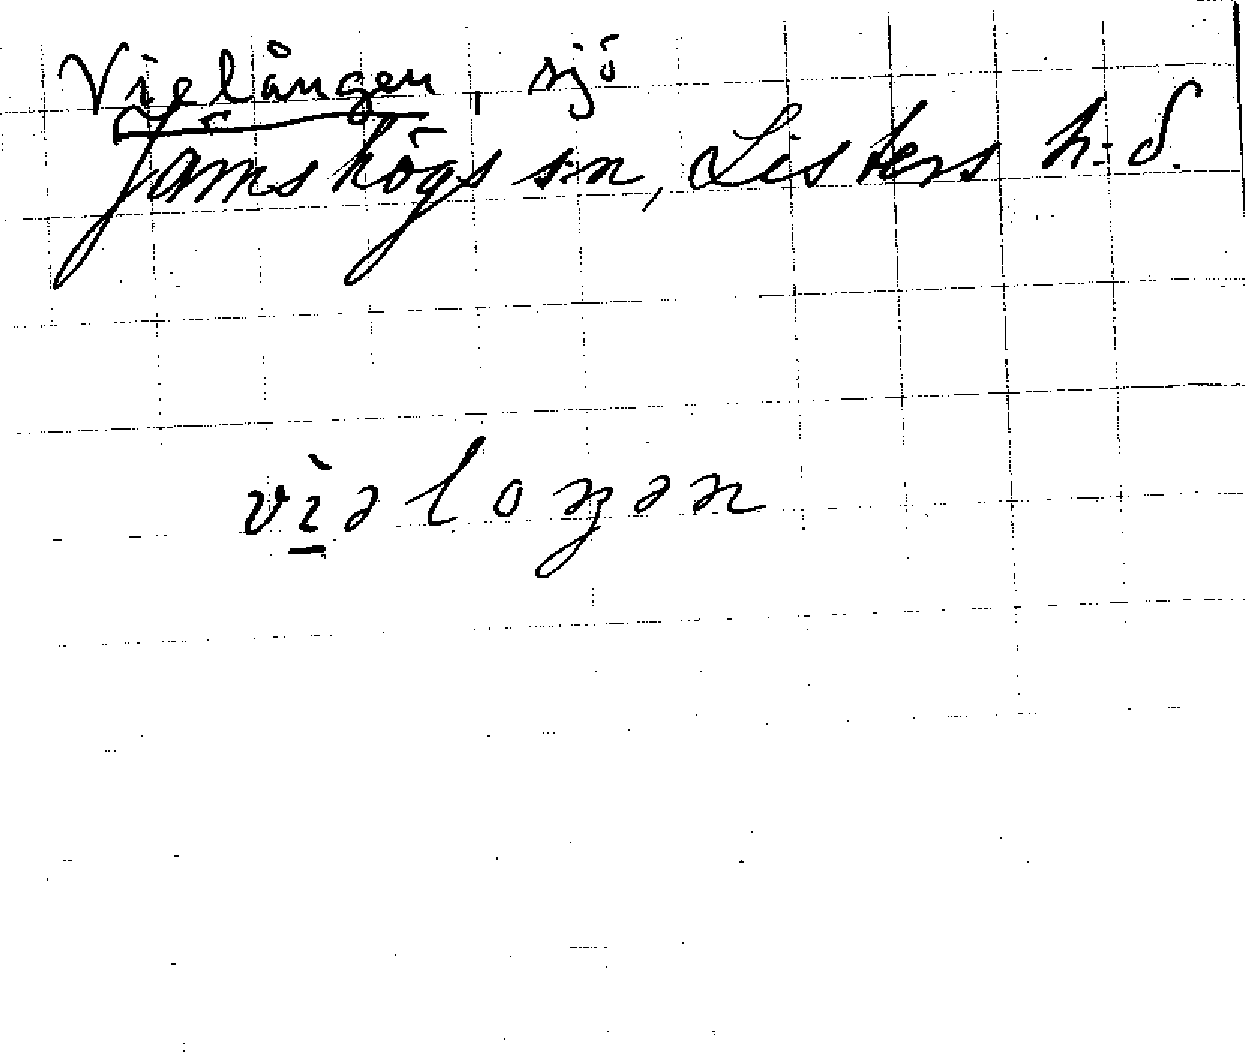 Vielången, sjö
Jämshögs s:n, Listers h:d.
vìəloŋən